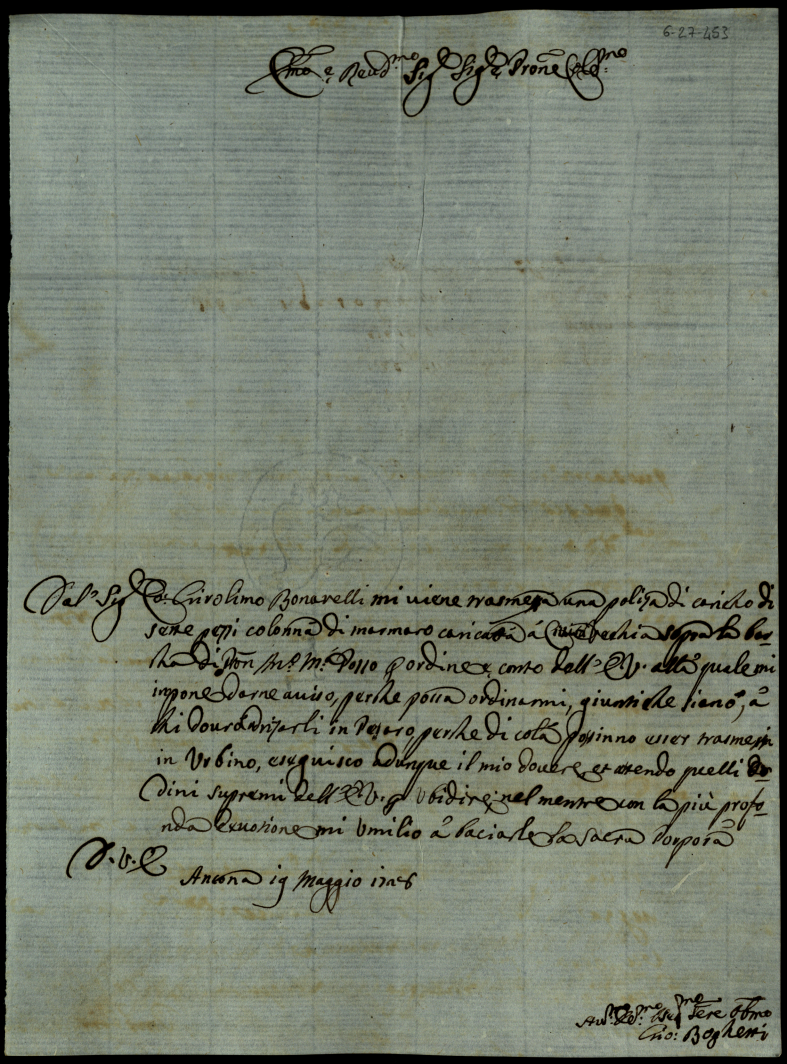 6-27-453
Em̃o e Reud.mo Sig.r Sig.r Prone
Dal Sig.r Co: Girolimo Bonarelli mi viene trasmessa una polizza di caricho di
sette pezzi colonna di marmaro caricatta á Civita vechia sopra la bar-
cha di ordine, e conto dell' E.V. alla quale mi
impone darne aviso, perche possa ordinarmi, giunti che siano, à
chi dourò adrizarli in Pesaro, perche di colà possinno esser trasmessi
in Urbino, eseguisco adunque il mio douere, et attendo quelli or-
dini supremi dell' E.V. p Ubidire; nel mentre con la più profo-
nda deuozione mi Umilio à baciarle la Sacra Porpora
D. V. E.
Ancona 19 Maggio 1726
Gio: Boghetti